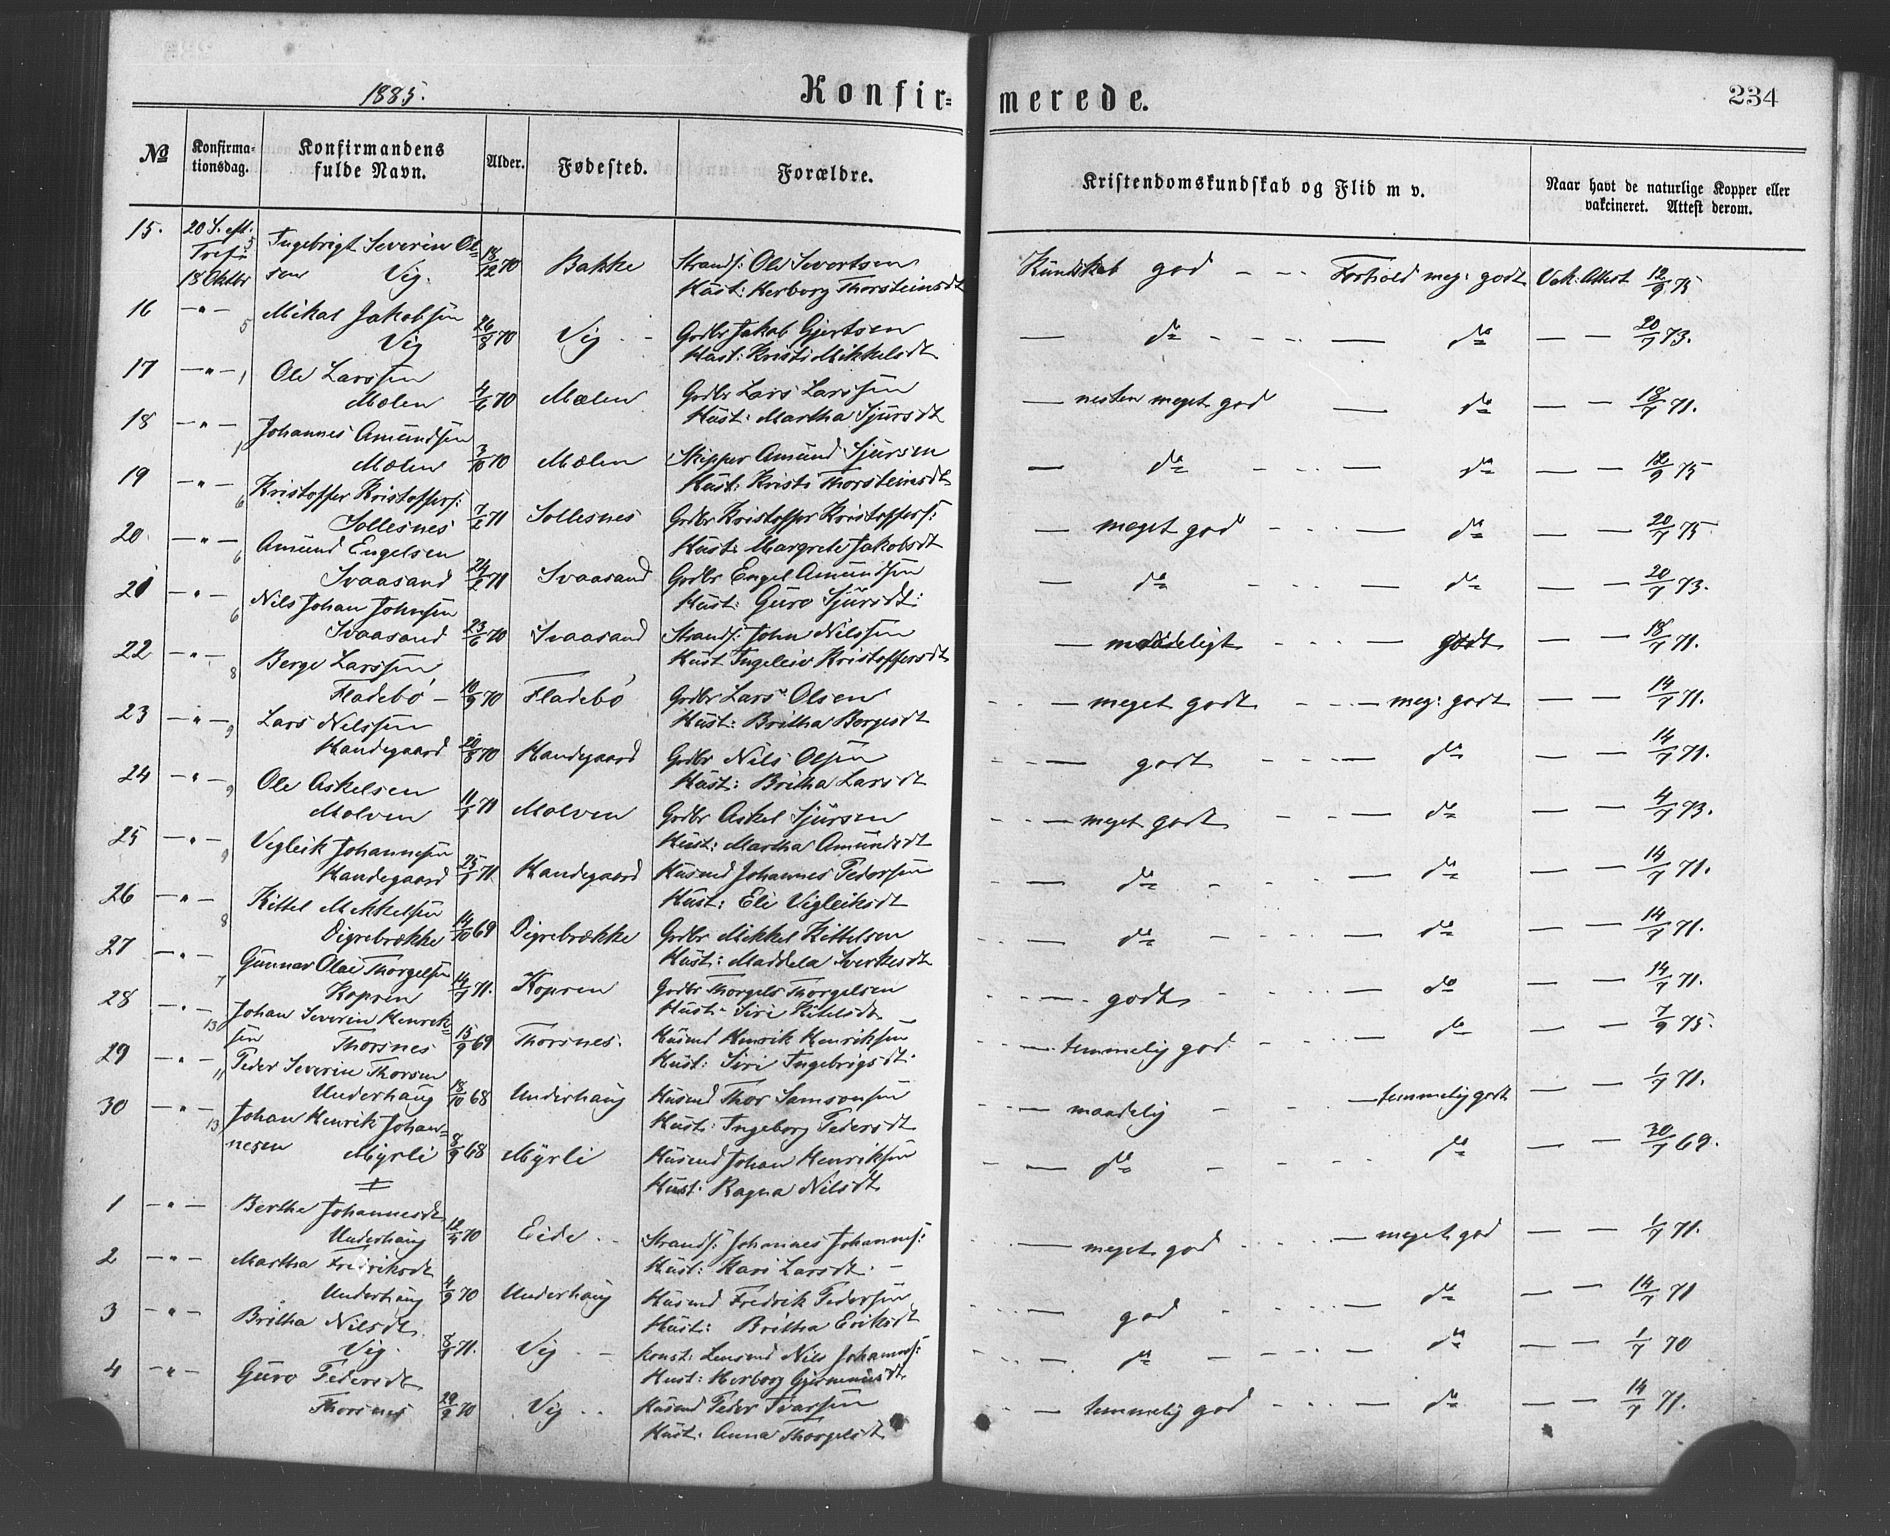 1885.
Konfir-
merede.
234
№
Konfirma-
tionsdag.
Konfirmandens
fulde Navn.
Alder.
Fødested.
Forældre.
Kristendomskundskab og Flid m v.
Naar havt de naturlige Kopper eller
vakcineret. Attest derom.
15. 20 S. eft. Ingebrigt Severin Ol- 18/12 70 Bakke Strands: Ole Sivertsen Kundskab god - - - Forhold meg: godt Vak: Attest 12/9 75
Tref: 5 sen Vig. Hust: Herborg Thorsteinsdt
18 Oktbr
16 -"- 5 Mikal Jakobsen 26/8 70 Vig - - Grdbr Jakob Gjertsen — do - - - — do — — 20/7 73.
Vig Hust: Kristi Mikkelsdt
17 -"- 1 Ole Larssen 4/6 70 Mælen Grdbr Lars Larssen — nesten meget god — do — — 18/7 71.
Mælen Hust: Martha Sjursdt
18 -"- 1 Johannes Amundsen 3/10 70 Mælen Skipper Amund Sjursen — do - - - — do — — 12/9 75
Mælen Hust: Kristi Thorsteinsdt
19 -"- 6 Kristoffer Kristoffers: 7/2 71 Sollesnes Grdbr Kristoffer Kristoffers: — meget god - - - — do — — 20/7 75
Sollesnes Hust: Margrete Jakobsdt
20 -"- 6 Amund Engelsen 24/2 71 Svaasand Grdbr Engel Amundsen — do - - - — do — — 20/7 73.
Svaasand Hust: Guro Sjursdt:
21 -"- 6 Nils Johan Johnsen 23/6 70 Svaasand Strands: John Nilssen — maadeligt - - - — godt — — 18/7 71.
Svaasand Hust Ingeleiv Kristoffersdt
22 -"- 8 Berge Larssen, 10/9 70 Fladebø Grdbr Lars Olsen - - — meget godt - - — meg: godt — — 14/7 71.
Fladebø - Hust: Britha Bergesdt
23 -"- 9 Lars Nilssen 20/8 70 Handegaard Grdbr Nils Olsen - - — godt - - - — do — — 14/7 71.
Handegaard Hust: Britha Larsdt
24 -"- 9 Ole Askelsen 11/1 71 Molven Grdbr Askel Sjursen - - — meget godt - - — do — — 4/7 73.
Molven Hust: Martha Amundsdt
25 -"- 9 Vigleik Johannesen 25/1 71. Handegaard Husmd Johannes Pedersen - — do - - — do — — 14/7 71.
Handegaard Hust: Eli Vigleiksdt
26 -"- 8 Kittel Mikkelsen 14/10 69 Digrebrække Grdbr Mikkel Kittelsen — do - - - — do — — 14/7 71.
Digrebrække Hust: Maddela Sverkesdt
27 -"- 7 Gunnar Olai Thorgelsen 14/7 71. Kopren Grdbr Thorgels Thorgelsen - - — godt - - - — do — — 14/7 71.
Kopren Hust: Siri Kitelsdt
28 -"- 13 Johan Severin Henrik- 15/9 69 Thorsnes. Husmd Henrik Henriksen - - — temmelig god - - — do — — 7/9 75.
sen Thorsnes Hust: Siri Ingebrigtsdt.
29 -"- 11 Peder Severin Thorsen 18/10 68 Underhaug Husmd Thor Samsonsen - - — maadelig - - — temmelig godt — — 1/7 71.
Underhaug Hust: Ingeborg Pedersdt
30 -"- 13 Johan Henrik Johan- 8/9 68 Myrli Husmd Johan Henriksen - — do - - - — do — — 30/7 69.
nesen Myrli Hust: Ragna Nilsdt
1 -"- Berthe Johannesdt 12/4 70 Eide - - Strands: Johannes Johannes: - - — meget god - - - — meget god — — 1/7 71.
Underhaug Hust: Kari Larsdt -
2 -"- Martha Fredriksdt 4/9 70 Underhaug Husmd Fredrik Pedersen - - — god - - - — do — — 14/7 71
Underhaug Hust: Britha Eriksdt
3 -"- Britha Nilsdt 8/1 71. Vig - - konst. Lensmd Nils Johannes: - - — do - - - — do — — 1/7 70
Vig. Hust: Herborg
4 -"- Guro Pedersdt 29/9 70 Vig - - Husmd Peder Ivarsen - - — temmelig god - - - — do — — 14/7 71.
Thorsnes Hust: Anna Thorgelsdt